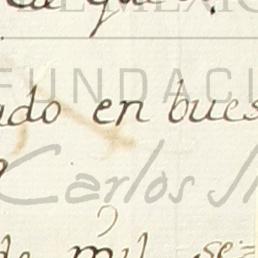 que
FUNDACI
ado en bues
Carlos Sl
de mil se